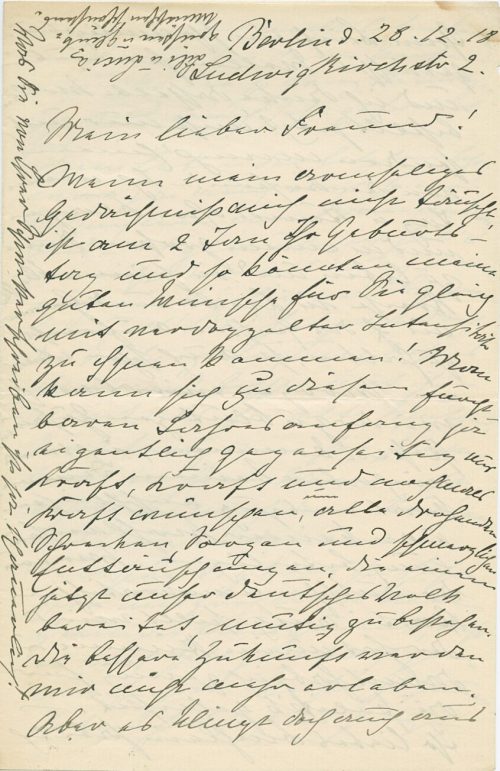 Berlin d. 28.12.18
Ludwigkirchstr 2.
Mein lieber Freund!
Wenn mein armseliges
Gedächtniß mich nicht täuscht,
ist am 2 Jan Ihr Geburts-
tag und so könnten meine
guten Wünsche für Sie gleich
mit verdoppelter Intensität
zu Ihnen kommen! Man
kann sich zu diesem furcht-
baren Jahresanfang ja
eigentlich gegenseitig nur
Kraft, Kraft und nochmals
Kraft wünschen, um alle drohenden
Schrecken, Sorgen und schmerzlichen
Enttäuschungen, die einem
jetzt unser deutsches Volk
bereitet, mutig zu bestehen.
Die bessere Zukunft werden
wir nicht mehr erleben.
Aber es klingt doch auch aus
Was Sie von Ihrer schreiben ist ja